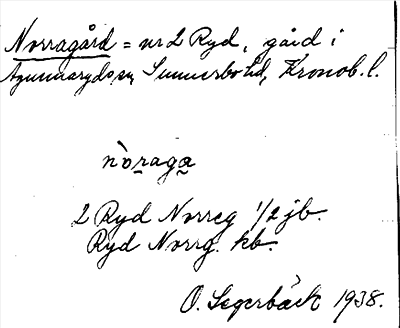 Norragård = nr 2 Ryd, gård i
Agunnaryds sn, Sunnerbo hd, Kronob. l.
nòraga
2 Ryd Norreg 1/2 jb.
Ryd Norrg. kb.
O. Segerbäck 1938.